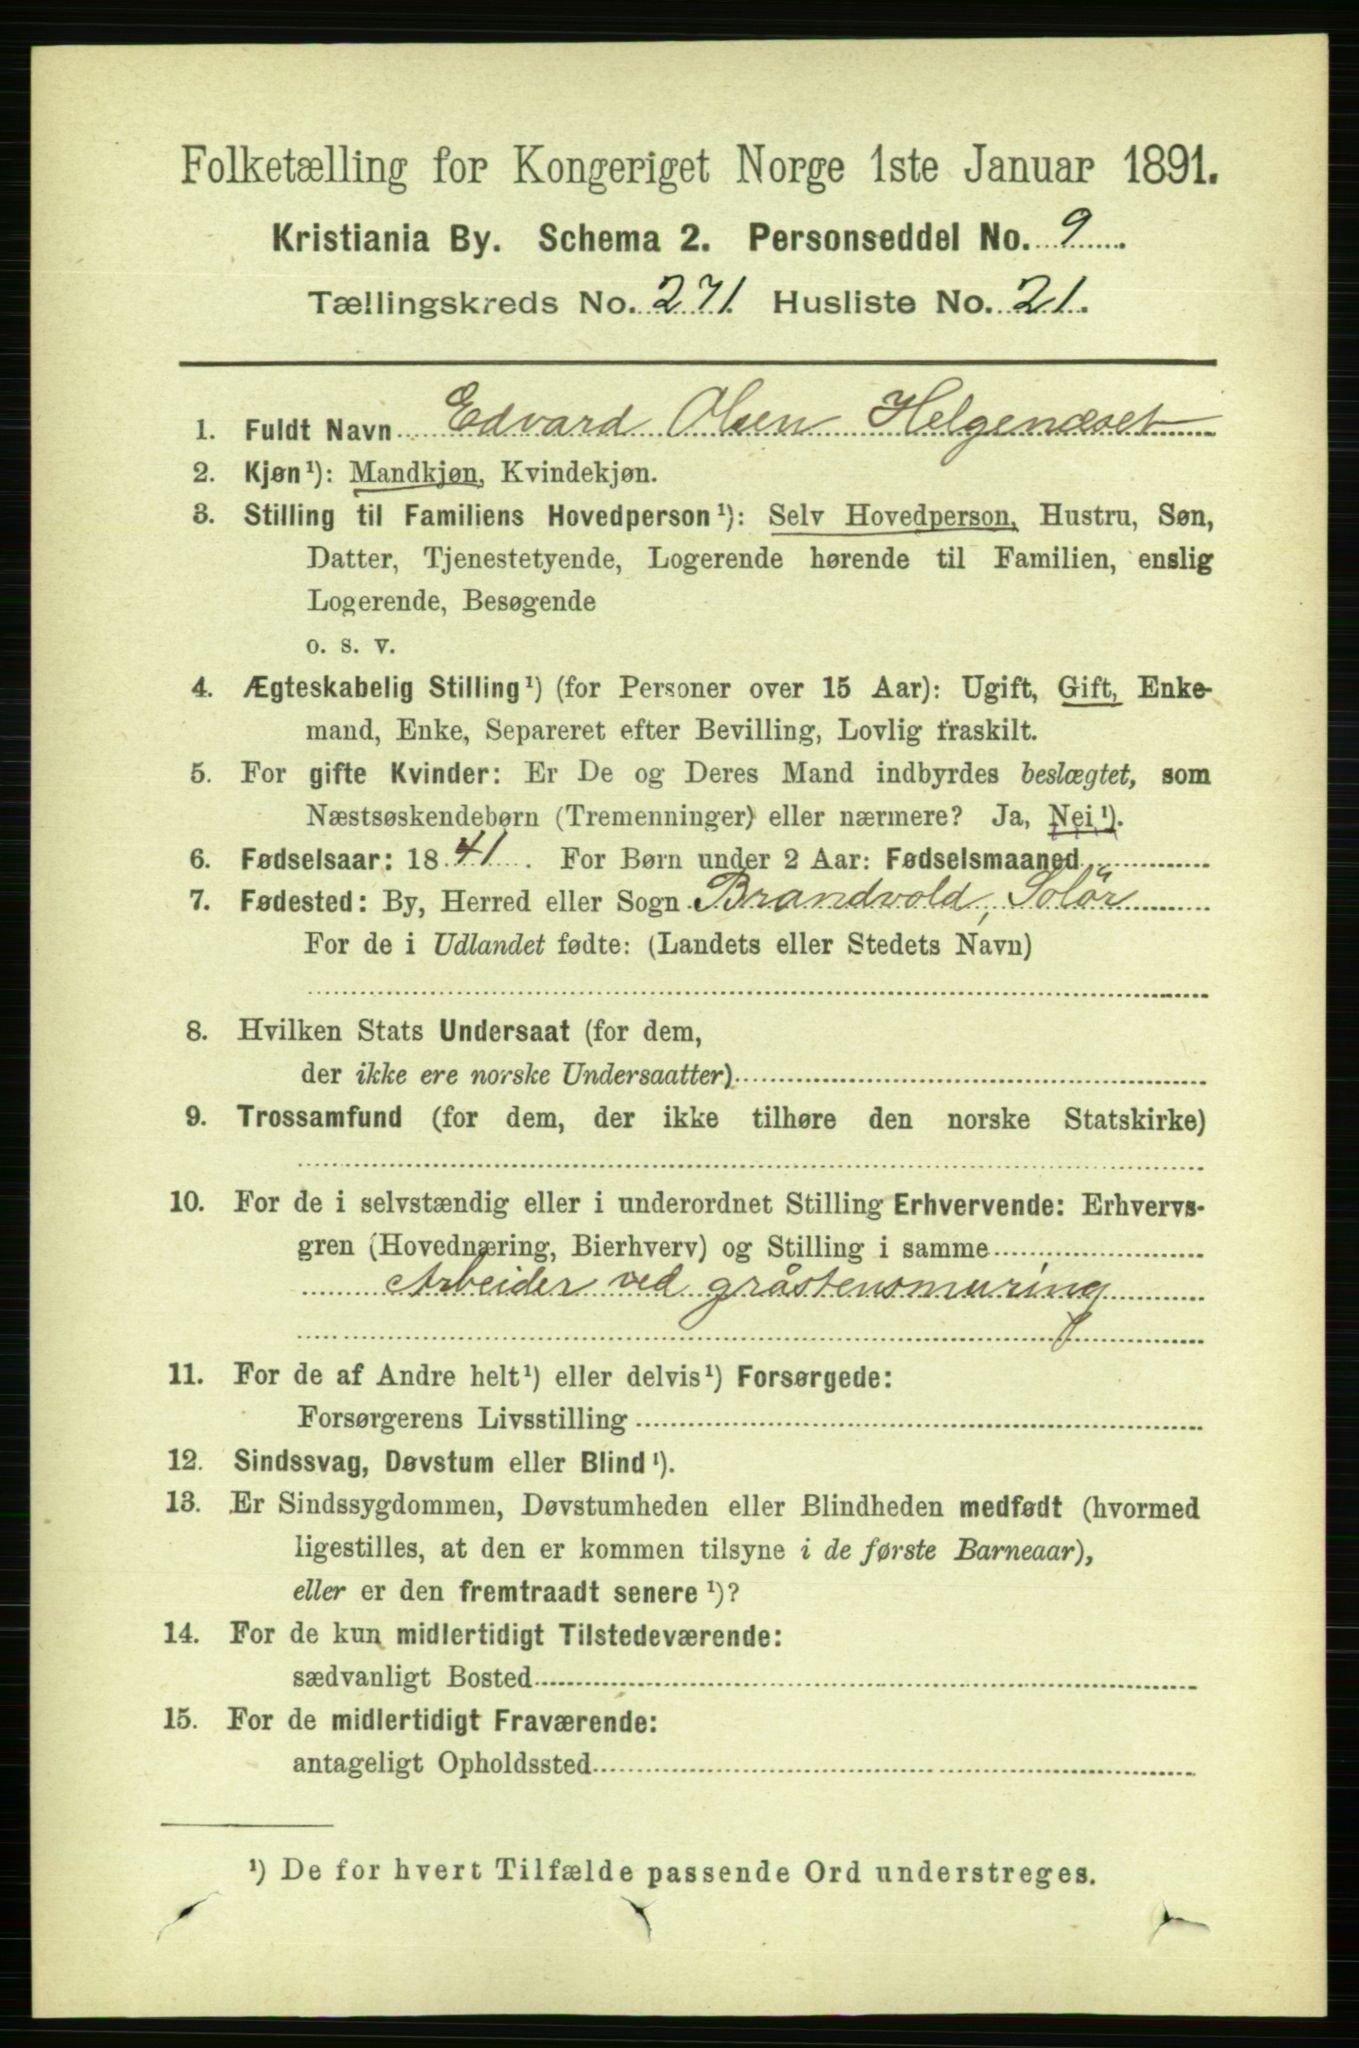 Folketælling for Kongeriget Norge 1ste Januar 1891.
Kristiania By. Schema 2. Personseddel No. 9
Tællingskreds No. 271. Husliste No. 21.
1. Fuldt Navn Edvard Olsen Helgenæset
2. Kjøn¹): Mandkjøn, Kvindekjøn.
3. Stilling til Familiens Hovedperson¹): Selv Hovedperson, Hustru, Søn,
Datter, Tjenestetyende, Logerende hørende til Familien, enslig
Logerende, Besøgende
o. s. v.
4. Ægteskabelig Stilling¹) (for Personer over 15 Aar): Ugift, Gift, Enke-
mand, Enke, Separeret efter Bevilling, Lovlig fraskilt.
5. For gifte Kvinder: Er De og Deres Mand indbyrdes beslægtet, som
Næstsøskendebørn (Tremenninger) eller nærmere? Ja, Nei¹).
6. Fødselsaar: 1841. For Børn under 2 Aar: Fødselsmaaned
7. Fødested: By, Herred eller Sogn Brandvold, Solör
For de i Udlandet fødte: (Landets eller Stedets Navn)
8. Hvilken Stats Undersaat (for dem,
der ikke ere norske Undersaatter)
9. Trossamfund (for dem, der ikke tilhøre den norske Statskirke)
10. For de i selvstændig eller i underordnet Stilling Erhvervende: Erhvervs-
gren (Hovednæring, Bierhverv) og Stilling i samme
Arbeider ved gråstensmuring
11. For de af Andre helt¹) eller delvis¹) Forsørgede:
Forsørgerens Livsstilling
12. Sindssvag, Døvstum eller Blind¹).
13. Er Sindssygdommen, Døvstumheden eller Blindheden medfødt (hvormed
ligestilles, at den er kommen tilsyne i de første Barneaar),
eller er den fremtraadt senere¹)?
14. For de kun midlertidigt Tilstedeværende:
sædvanligt Bosted
15. For de midlertidigt Fraværende:
antageligt Opholdssted
¹) De for hvert Tilfælde passende Ord understreges.